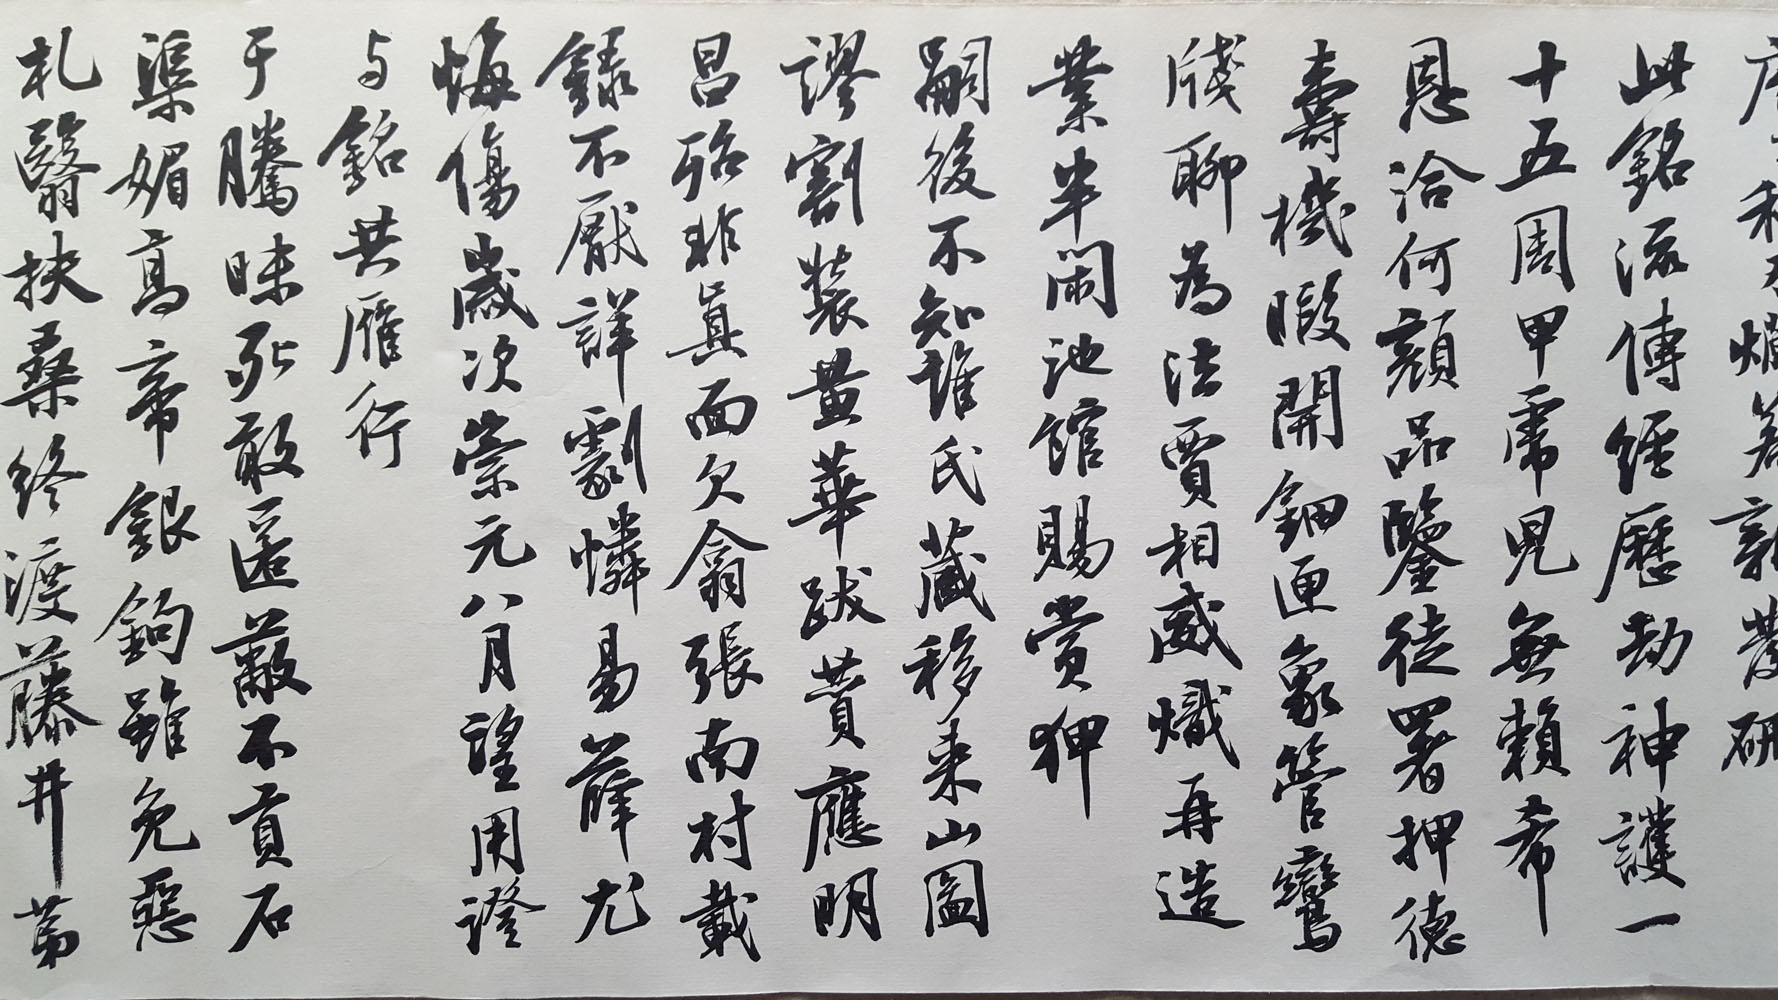 此銘流傳經歷劫神護一
十五周甲虎兒無賴希
恩洽何顏品鑒徒署押德
壽機暇開鈿匣象管鸞
牋聊為法賈相威熾再造
業半閑池館賜賞狎
嗣後不知誰氏藏移來山圖
謬割裝董華跋贊應明
昌殆非真面欠翕張南村載
錄不厭詳劇憐易薛尤
悔傷歲次崇元八月望用證
与銘共雁行
于騰昧死敢匿蔽不貢石
渠媚高帝銀鉤雖免惡
札翳扶桑終渡藤井第